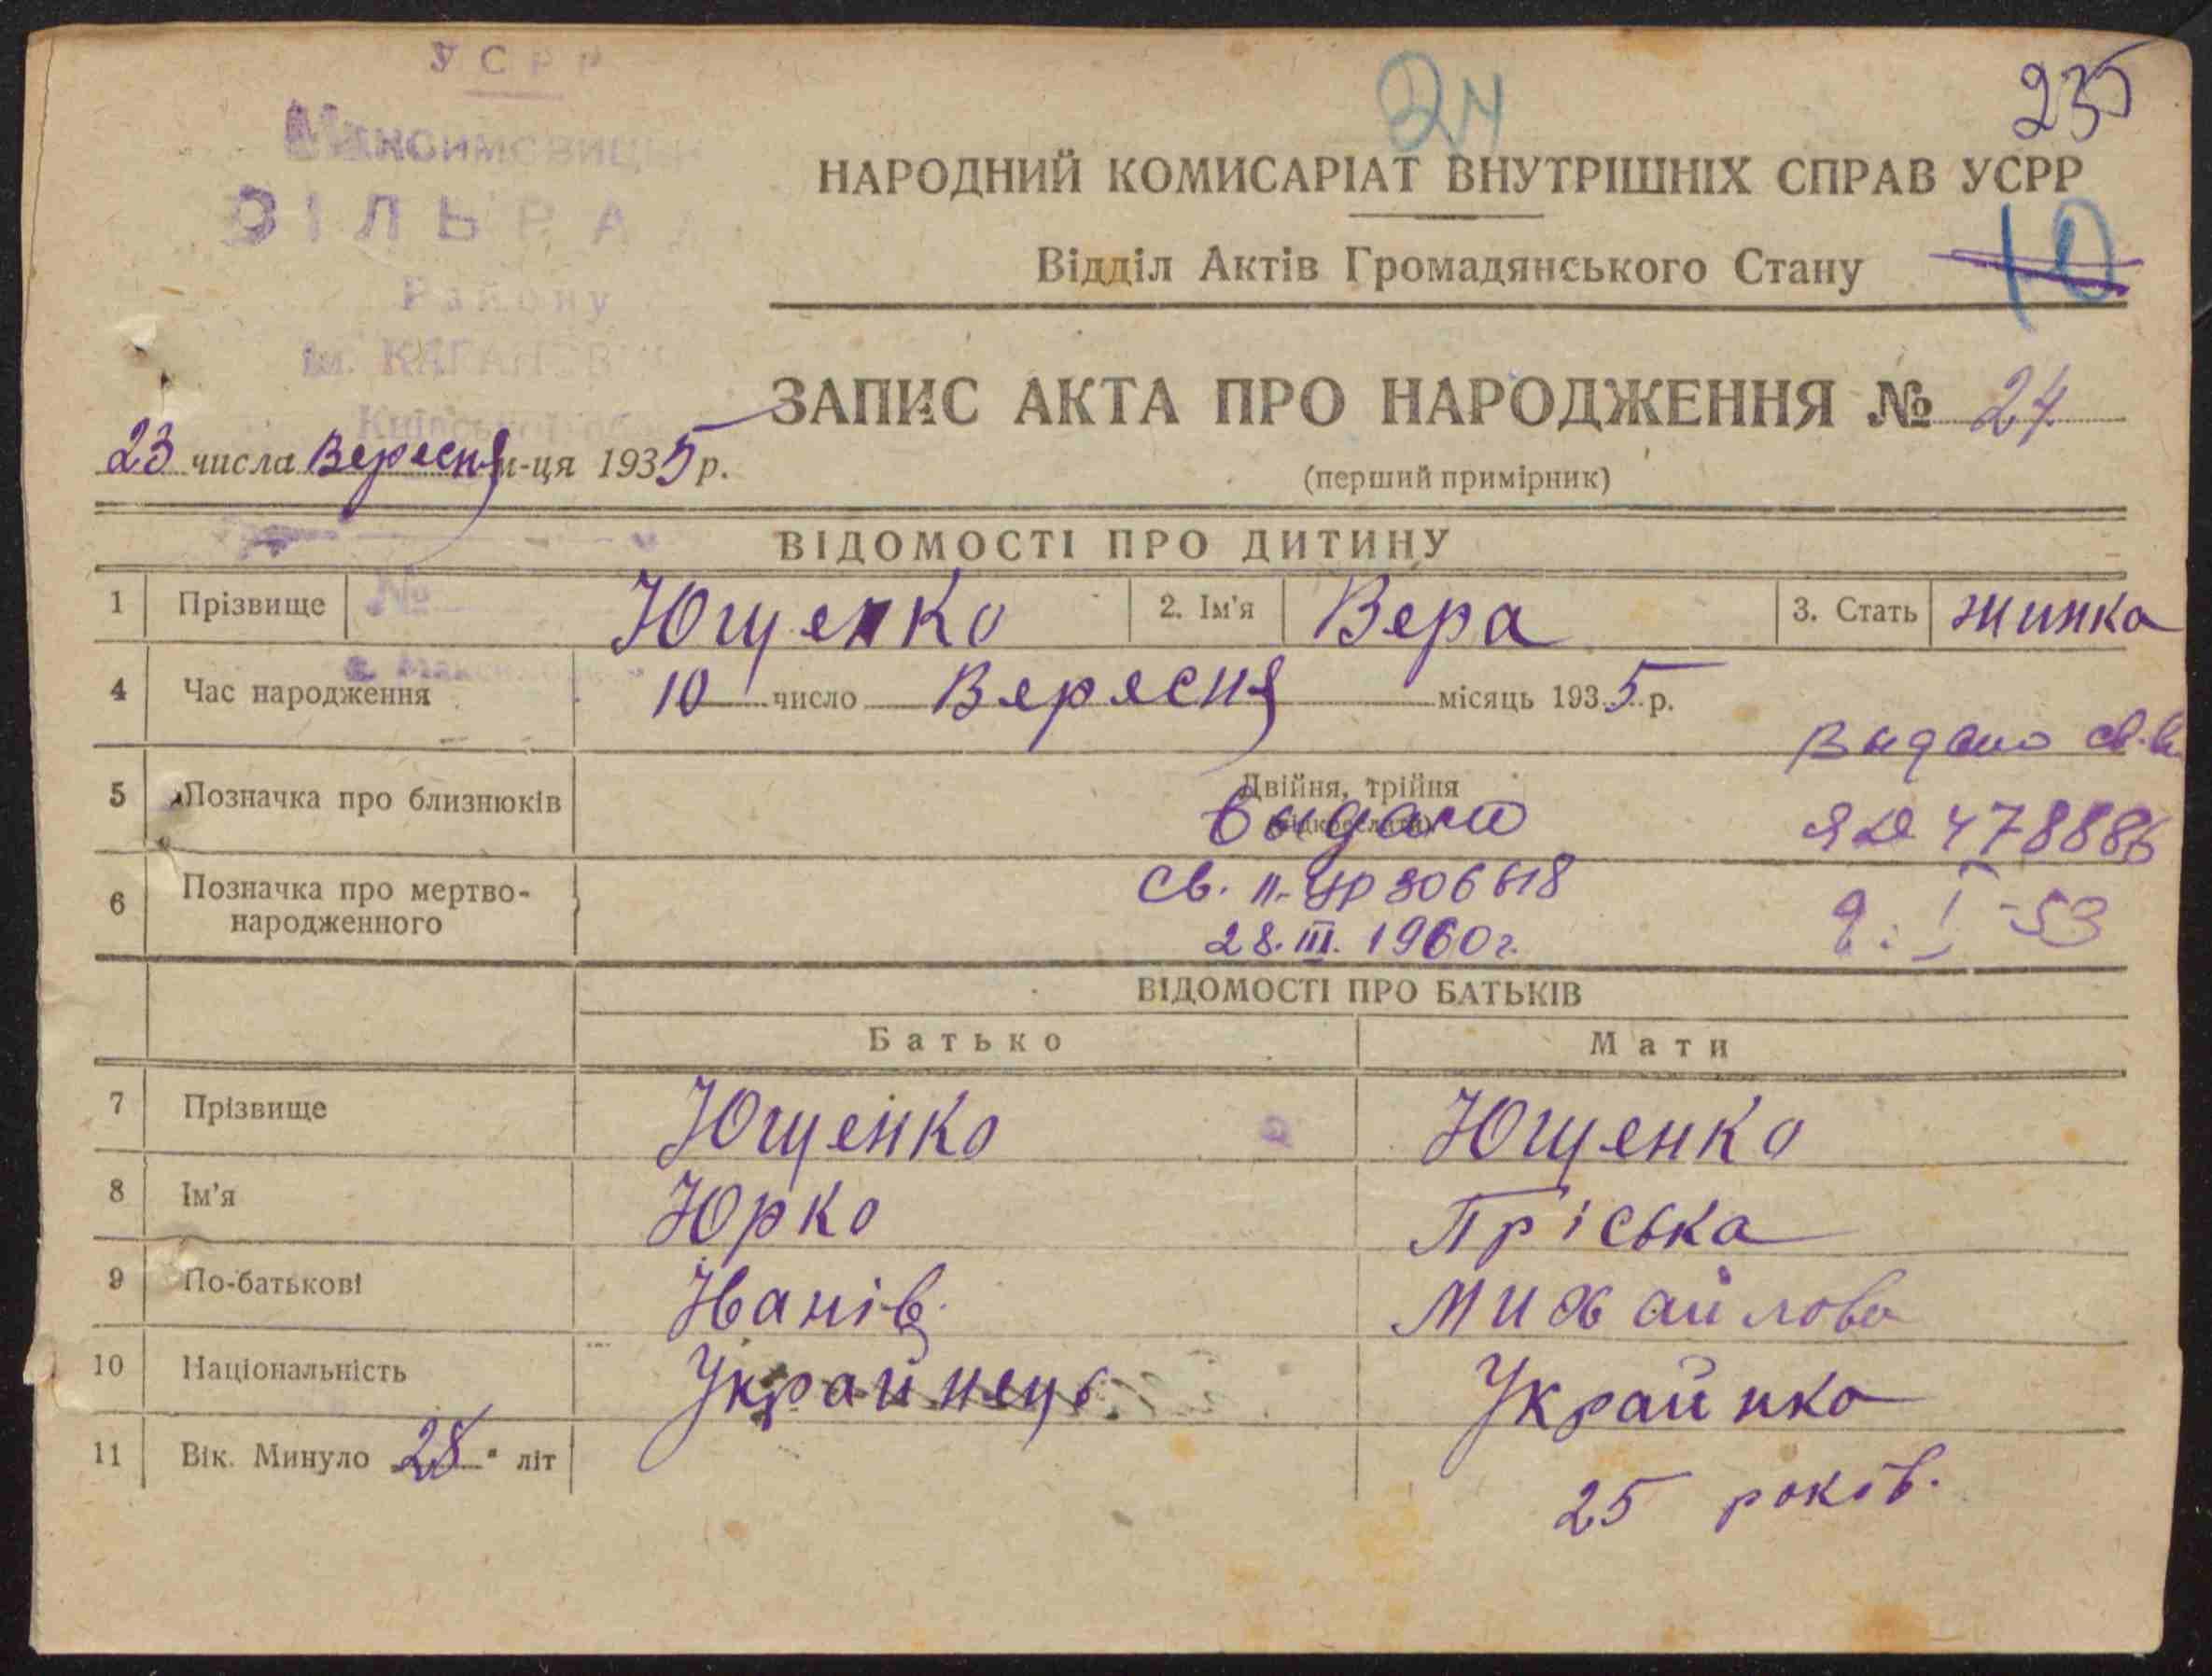 УСРР
24
235
Максимовицьк
СІЛЬРАДА
Району
ім. КАГАНОВИЧ
Київської обл
НАРОДНИЙ КОМИСАРІАТ ВНУТРІШНІХ СПРАВ УСРР
Відділ Актів Громадянського Стану
10
ЗАПИС АКТА ПРО НАРОДЖЕННЯ № 24
23 числа Вересня м-ця 1935 р.
(перший примірник)
ВІДОМОСТІ ПРО ДИТИНУ
№
1 Прізвище Ющенко 2. Ім'я Вера 3. Стать жинка
4 Час народження 10 число Вересня місяць 1935 р.
Видано св.
5 Позначка про близнюків Двійня, трійня
(підкреслити)
выдано
ЯЮ 478886
6 Позначка про мертво-
народженного
Св. II-УР 306618
28.III.1960г.
9.I-53
ВІДОМОСТІ ПРО БАТЬКІВ
Батько Мати
7 Прізвище Ющенко Ющенко
8 Ім'я Юрко Пріська
9 По-батькові Іванів. Михайлова
10 Національність Украйнець Украйнка
11 Вік. Минуло 28 літ 25 років.